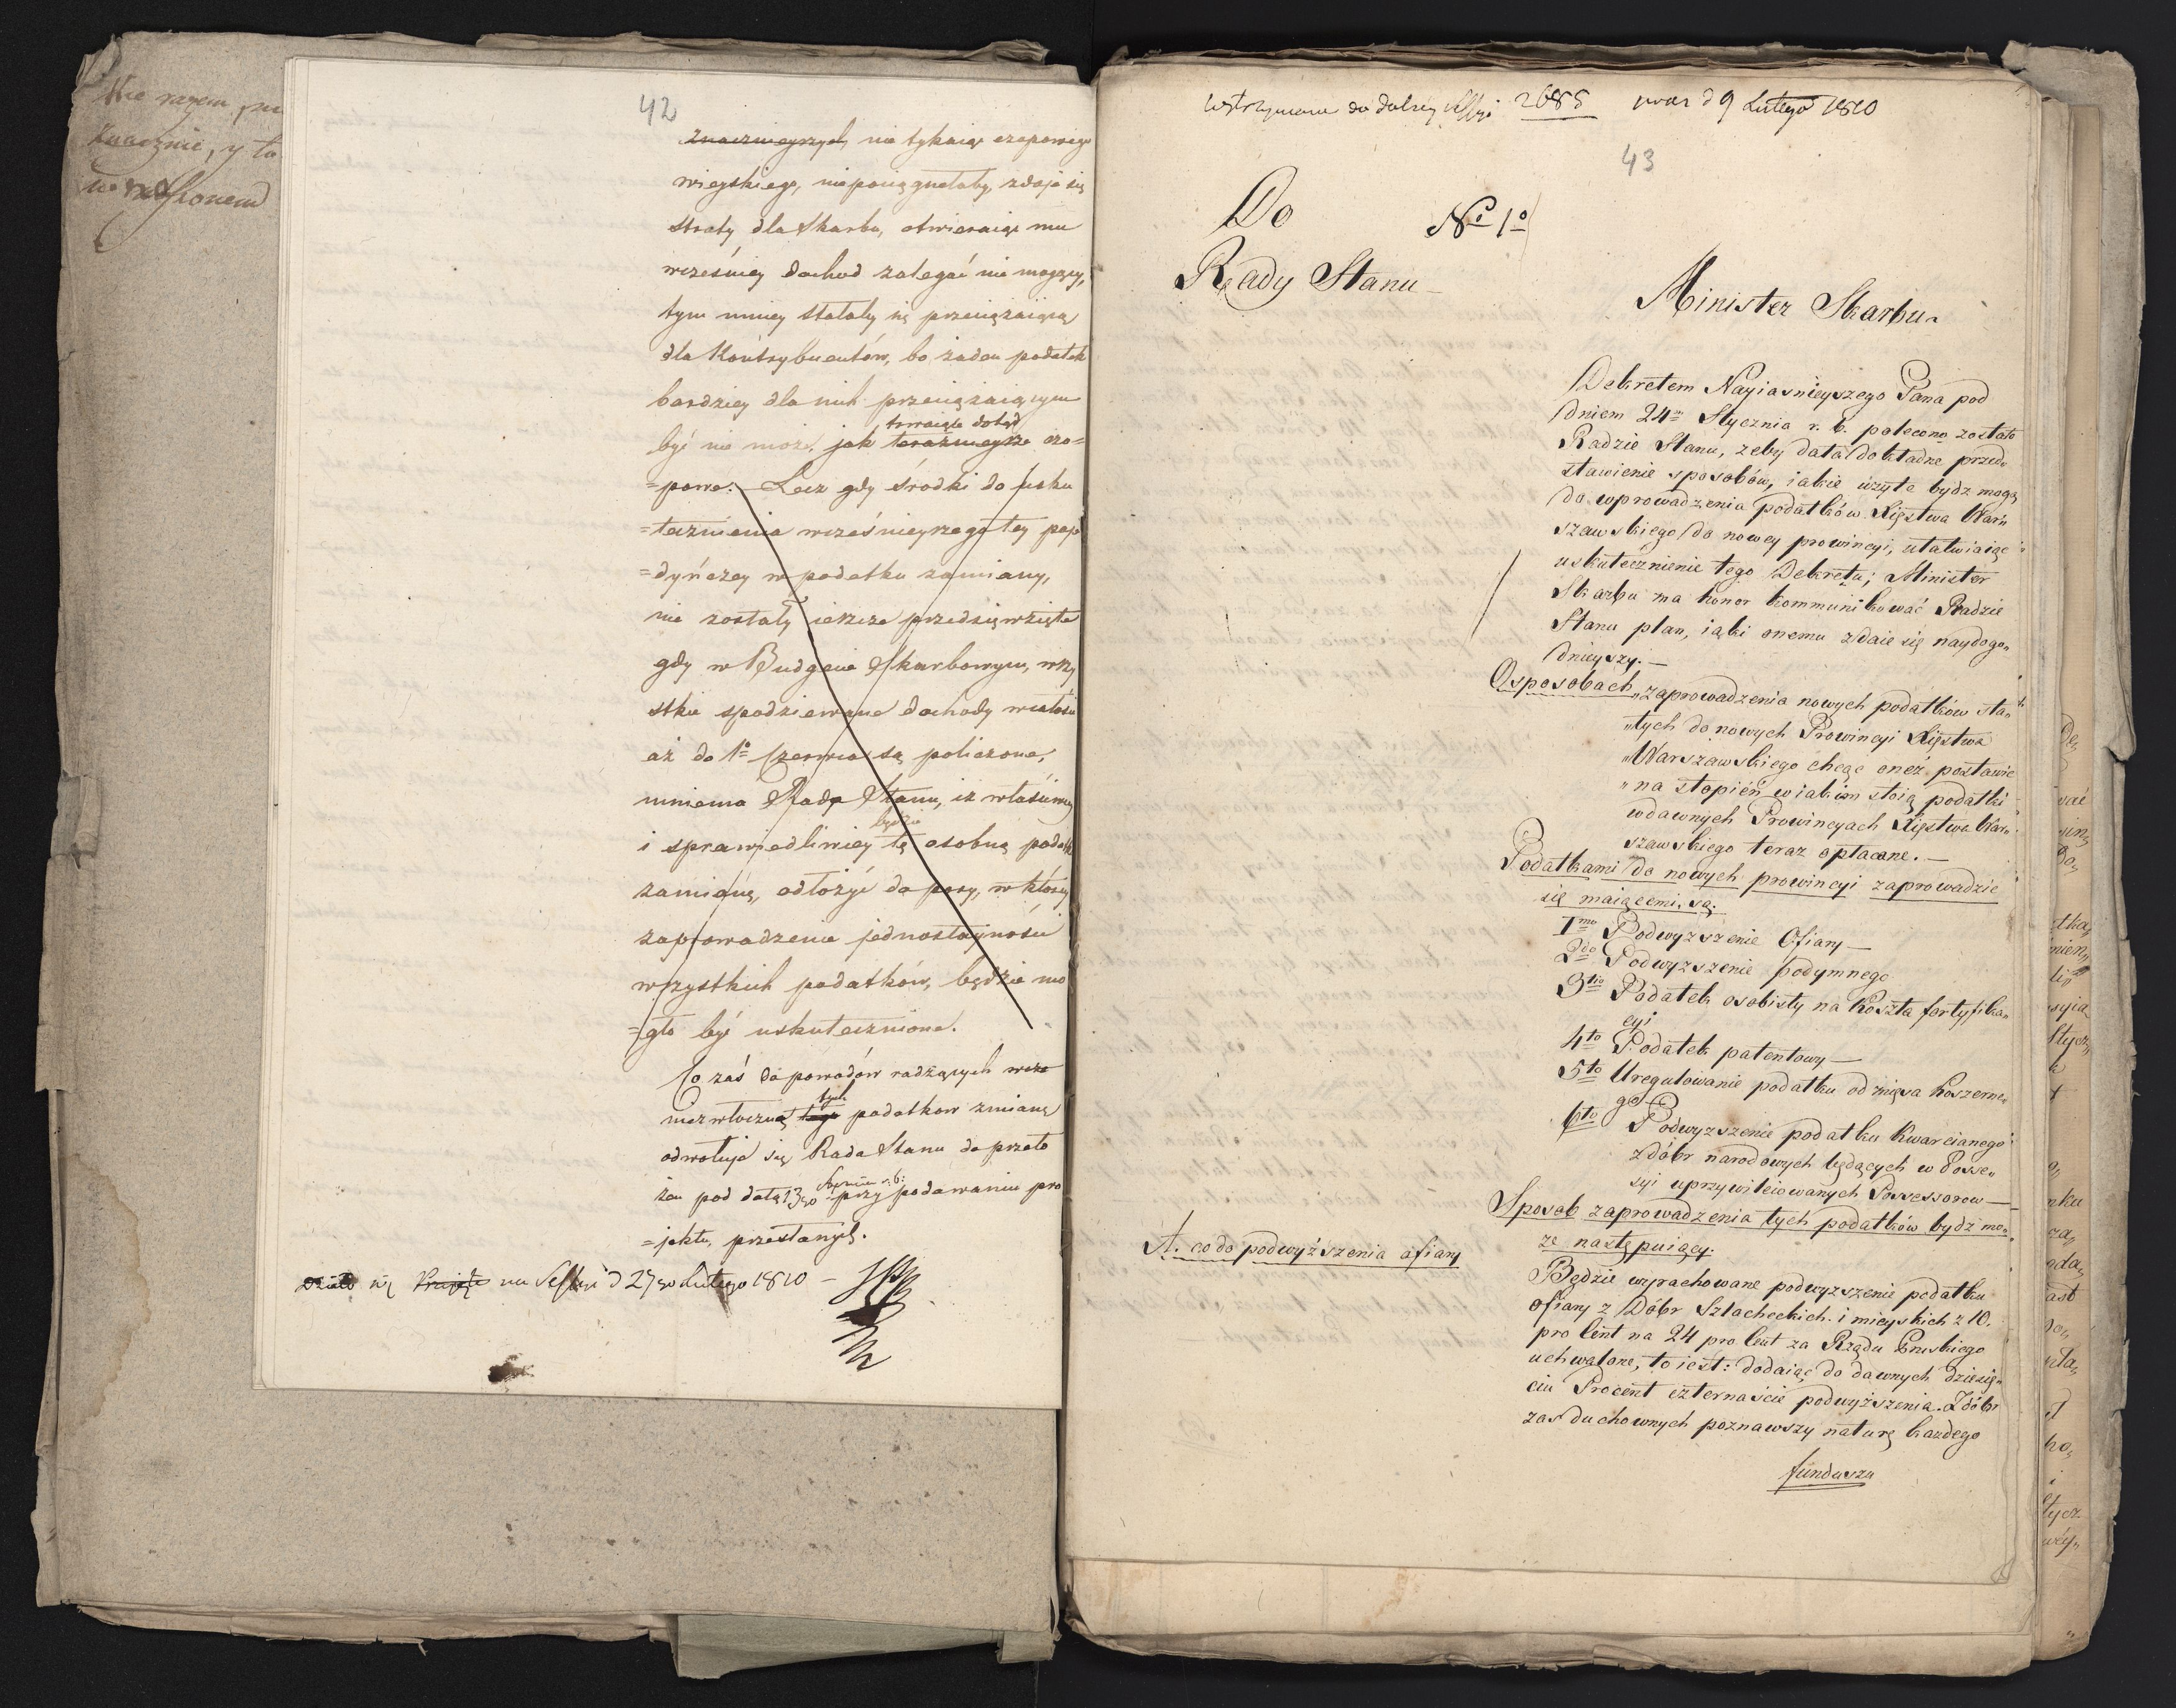 Nie razem, 
znacznie, y to

42
znacznieyszych, nie tykaiąc czopowego
wieyskiego, niepociągnęłaby, zdaje się
straty dla Skarbu, otwieraiąc mu
wcześniey dochod zalegać nie mogący,
tym mniey stałaby się przeciążaiącą
dla Kontrybuentów, bo żaden podatek
bardziey dla nich przeciążaiącym
trwaiące dotąd
być nie może, jak teraznieysze czo=
=powe. Lecz gdy środki do usku
=tecznienia wcześnieyszego tey poje
=dyńczey w podatku zamiany,
nie zostały ieszcze przedsięwzięte
gdy w Budgecie Skarbowym, wszy
stkie spodziewane dochody w całości
aż do 1o Czerwca są policzone,
mniema Rada Stanu, iż właściwiey
i sprawiedliwiey będzie tę osobną podatk
zamianę, odłożyć do pory, w którey
zaprowadzenie jednostayności
wszystkich podatków, będzie mo
=gło być uskutecznione.
Co zaś do powodów radzących wcze
tych
niezwłoczną tego podatkow zmianę
odwołuje się Rada Stanu do przeło
Stycznia r. b.
żeń pod datą 13go przy podawaniu pro
=jektu, przesłanych.
Działo się Przyjęte na Sessyi d 27go Lutego 1810 —

Wstrzymane do dalszey Sessyi 2685 prae d 9 Lutego 1810
43
Do No 1o
Rady Stanu
Minister Skarbu
Dekretem Nayiasnieyszego Pana pod
dniem 24m Stycznia r. b. polecono zostało
Radzie Stanu, zeby dała dokładne przed„
stawienie sposobów, iakie użyte bydz mogą
do wprowadzenia podatków Xięstwa War„
szawskiego do nowey prowincyi, ułatwiaiąc
uskutecznienie tego Dekretu; Minister
Skarbu ma honor kommunikować Radzie
Stanu plan, iaki onemu zdaie się naydogo„
dnieyszy. —
O sposobach „zaprowadzenia nowych podatków sta„
„łych do nowych Prowincyi Xięstwa
„Warszawskiego chcąc oneż postawić
„na stopień w iakim stoią podatki
w dawnych Prowincyach Xięstwa War„
szawskiego teraz opłacane. —
Podatkami do nowych prowincyi zaprowadzić
się maiącemi, są:
1mo Podwyzszenie Ofiary —
2do Podwyzszenie podymnego
3tio Podatek osobisty na Koszta fortyfika„
cyi
4to Podatek patentowy —
5to Uregulowanie podatku od mięsa koszerne„
go —
6to Podwyzszenie podatku Kwarcianego
z dóbr narodowych będących w Posse„
syi uprzywileiowanych Possessorow —
Sposob zaprowadzenia tych podatków bydz mo„
że następuiący.
A. co do podwyższenia ofiary
Będzie wyrachowane podwyzszenie podatku
ofiary z Dóbr Szlacheckich i mieyskich z 10.
pro Cent na 24 pro Cent za Rządu Pruskiego
uchwalone, to iest: dodaiąc do dawnych dziesię„
ciu Procent czternaście podwyższenia. Z dóbr
zaś duchownych poznawszy naturę każdego
funduszu